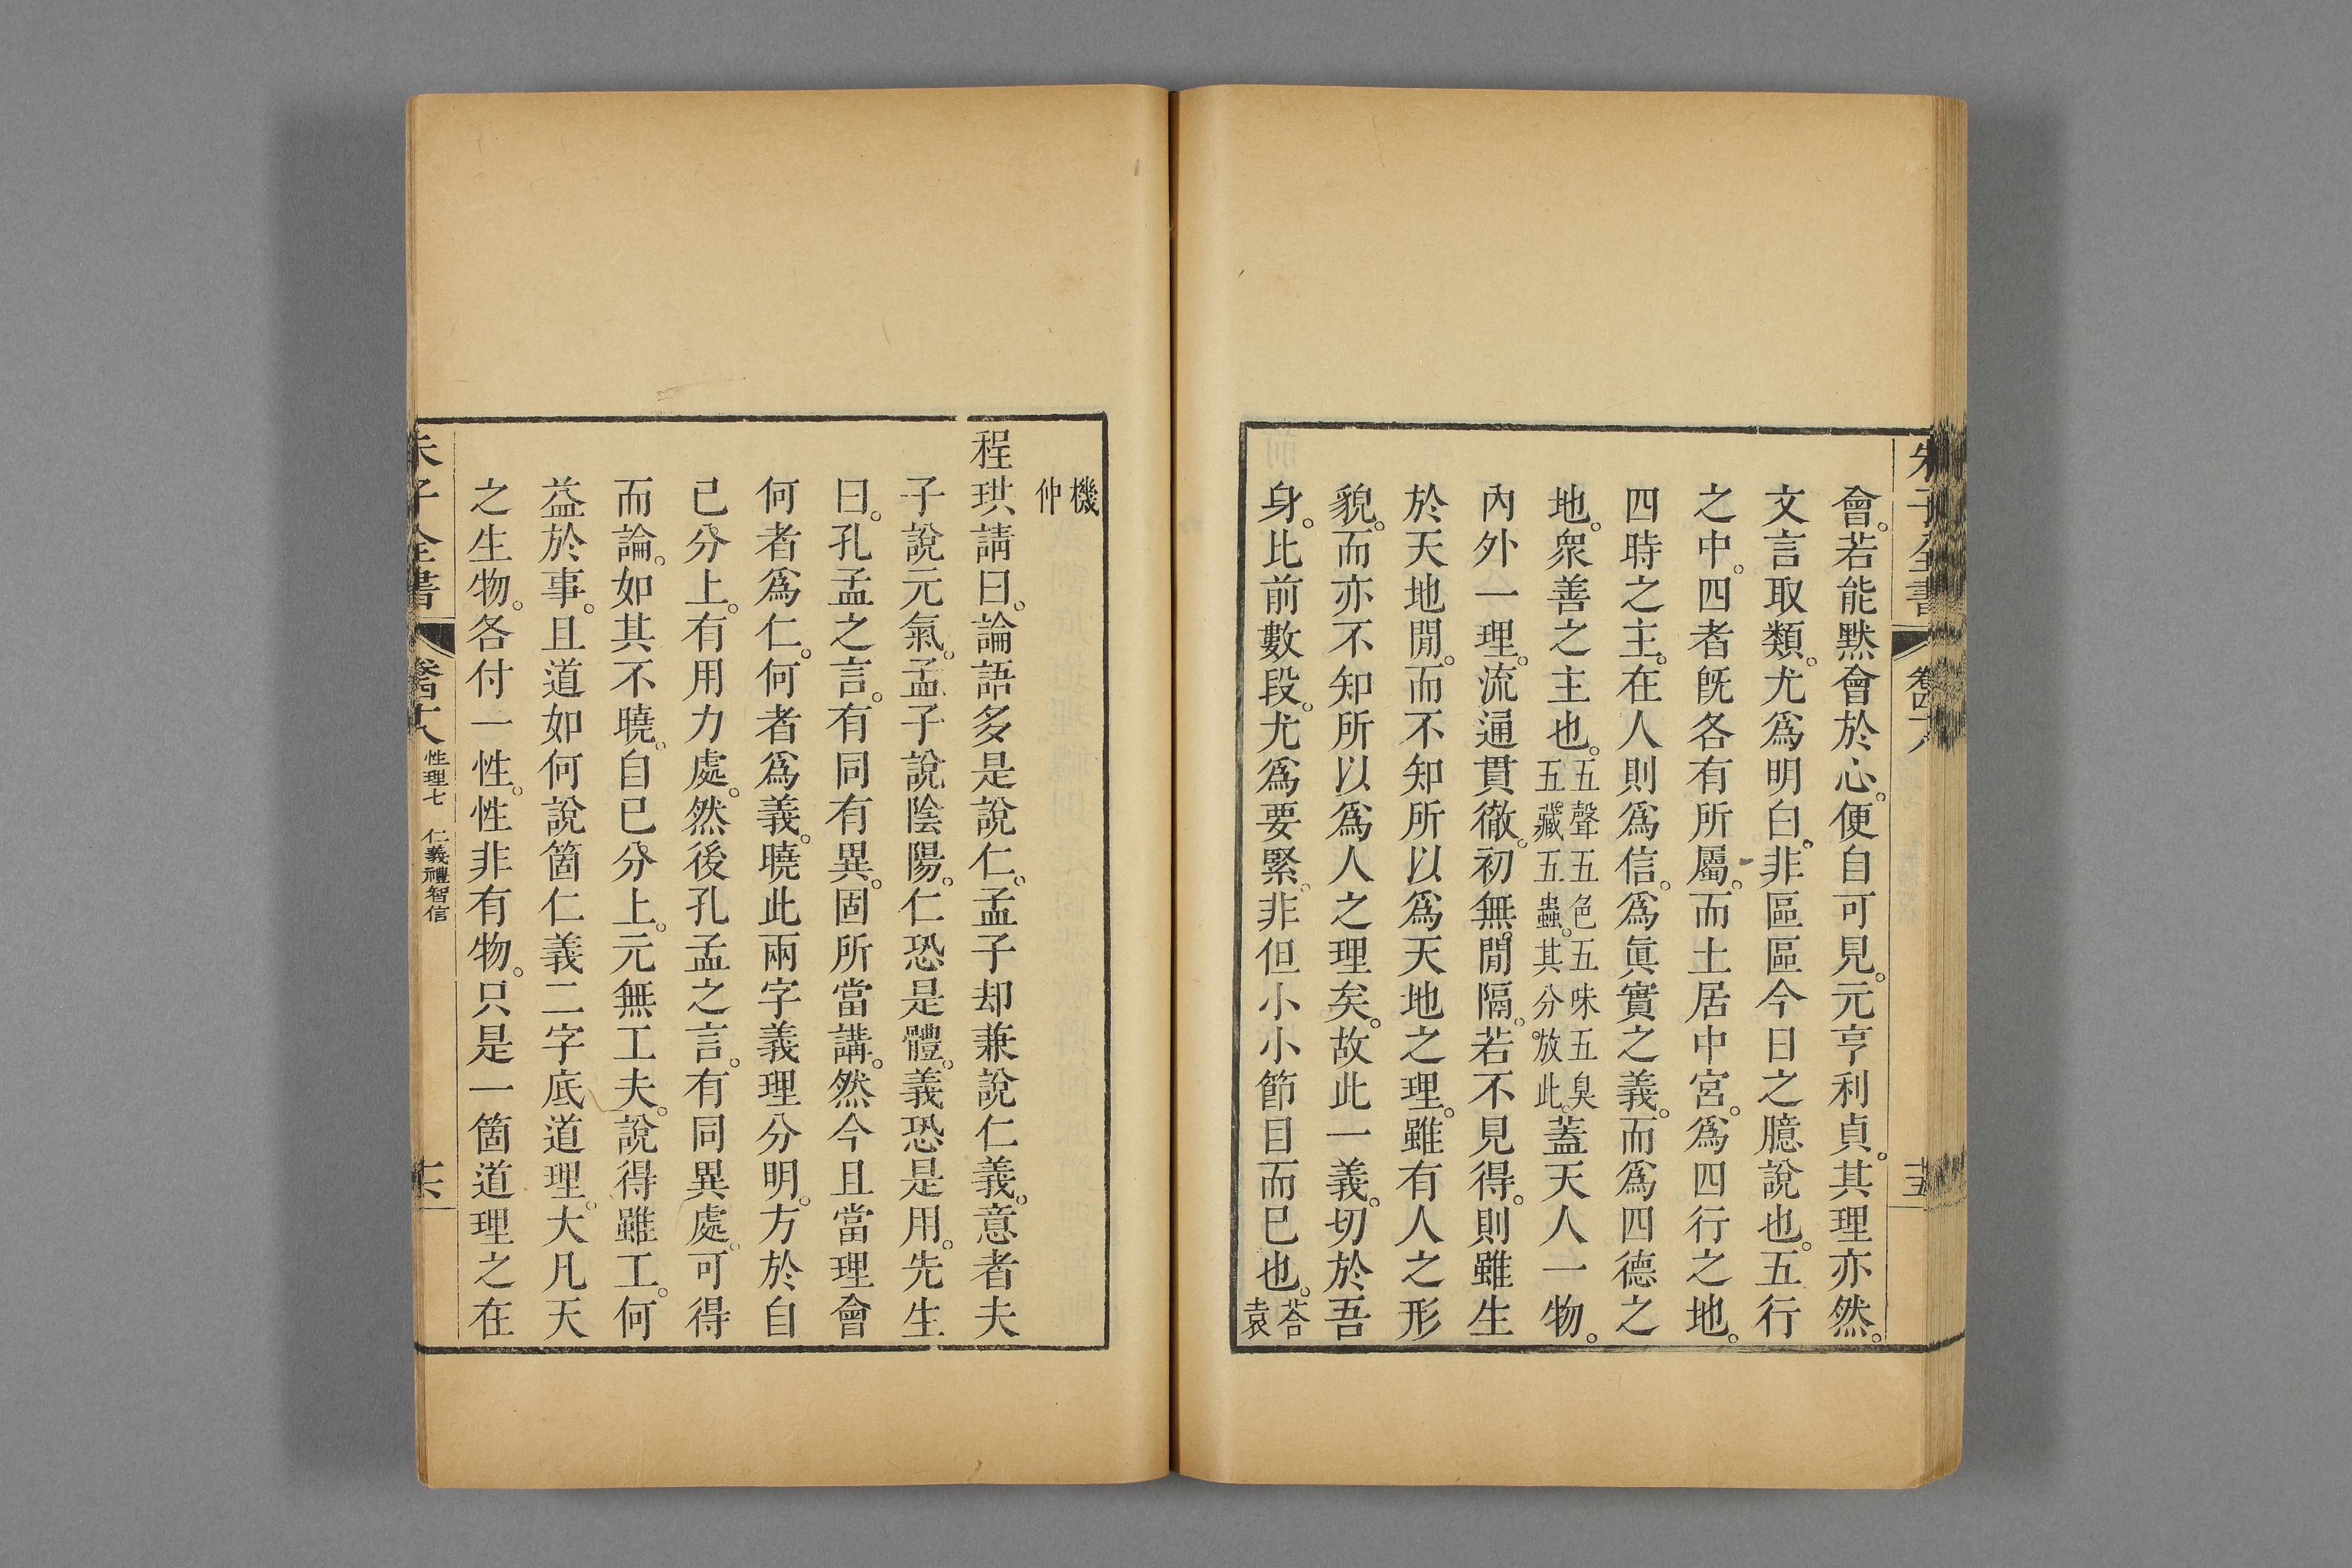 朱子全書 卷四十八 十五
會。若能默會於心。便自可見。元亨利貞。其理亦然。
文言取類。尤爲明白。非區區今日之臆說也。五行
之中。四者旣各有所屬。而土居中宮。爲四行之地。
四時之主。在人則爲信。爲眞實之義。而爲四德之
地。衆善之主也。五聲五色五味五臭五藏五蟲。其分放此。蓋天人一物。
內外一理。流通貫徹。初無閒隔。若不見得。則雖生
於天地閒。而不知所以爲天地之理。雖有人之形
貌。而亦不知所以爲人之理矣。故此一義。切於吾
身。比前數段。尤爲要緊。非但小小節目而已也。答袁
機仲
程珙請曰。論語多是說仁。孟子却兼說仁義。意者夫
子說元氣。孟子說陰陽。仁恐是體。義恐是用。先生
曰。孔孟之言。有同有異。固所當講。然今且當理會
何者爲仁。何者爲義。曉此兩字義理分明。方於自
己分上。有用力處。然後孔孟之言。有同異處。可得
而論。如其不曉。自己分上。元無工夫。說得雖工。何
益於事。且道如何說箇仁義二字底道理。大凡天
之生物。各付一性。性非有物。只是一箇道理之在
朱子全書 卷四十八 性理七 仁義禮智信 十六